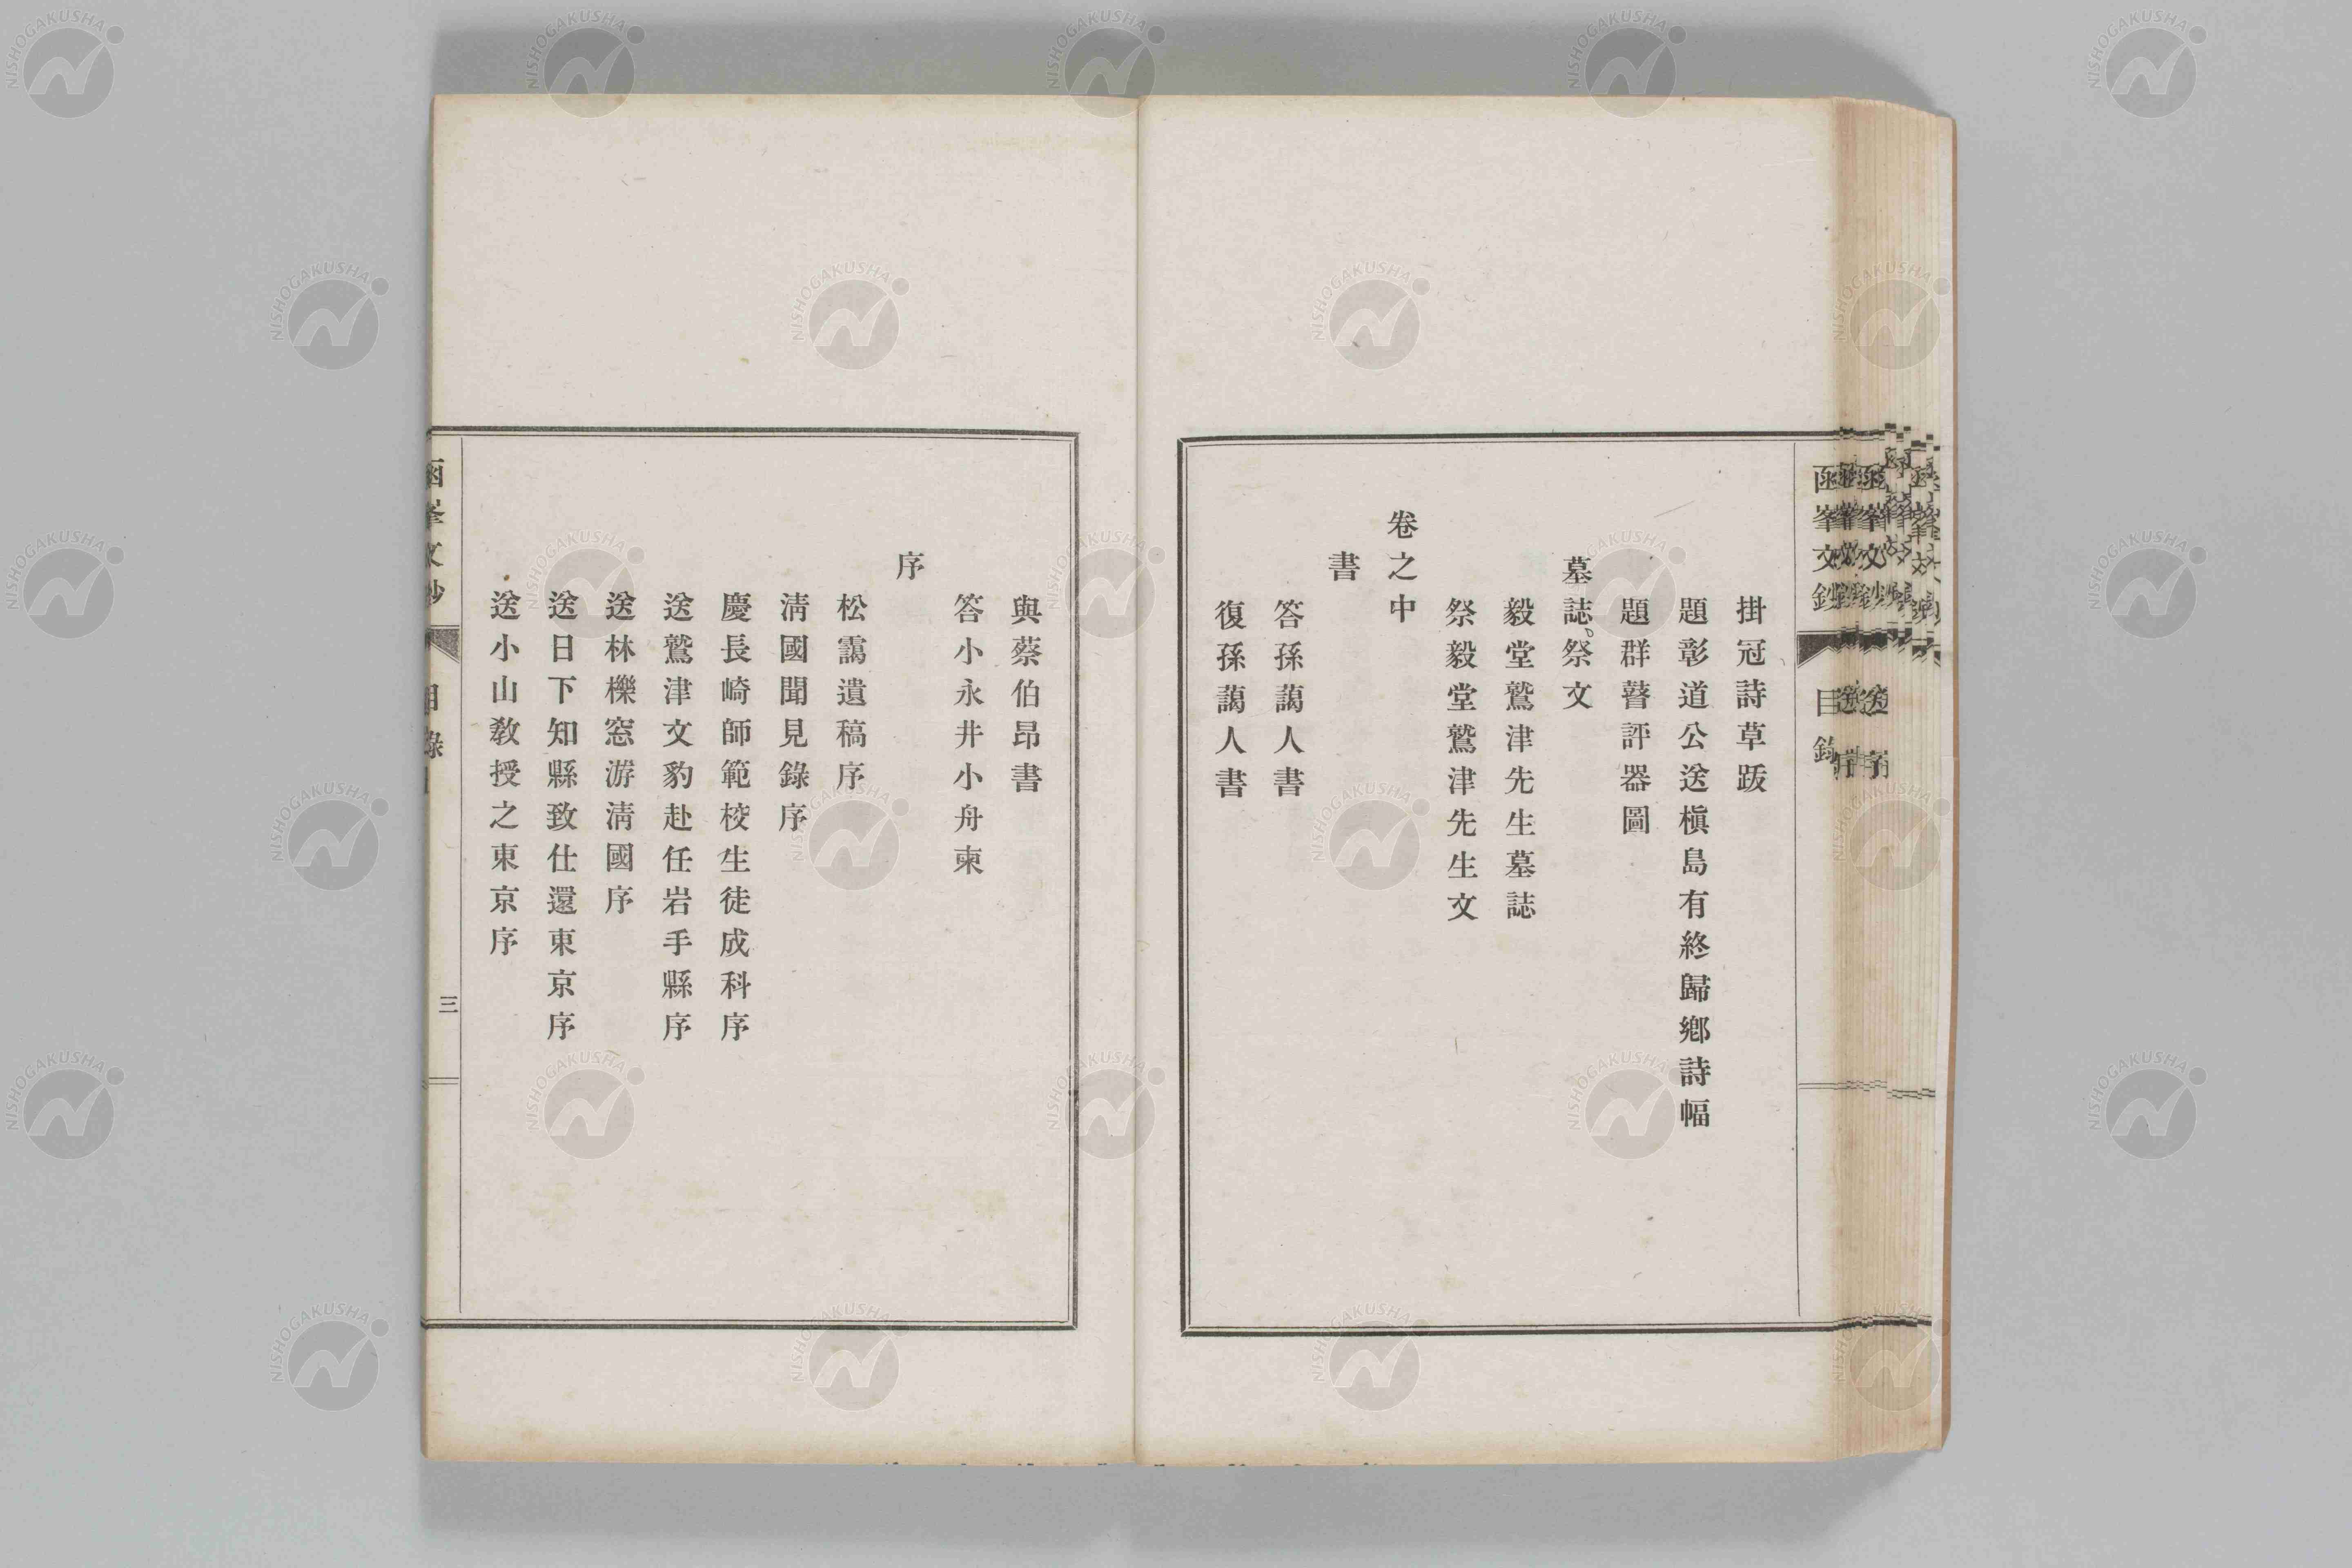 函峯文鈔
目錄
掛冠詩草跋
題彰道公送槇島有終歸鄕詩幅
題群瞽評器圖
墓誌。祭文
毅堂鷲津先生墓誌
祭毅堂鷲津先生文
卷之中
書
答孫藹人書
復孫藹人書
與蔡伯昂書
答小永井小舟柬
序
松靄遺稿序
淸國聞見錄序
慶長崎師範校生徒成科序
送鷲津文豹赴任岩手縣序
送林櫟窓游淸國序
送日下知縣致仕還東京序
送小山敎授之東京序
函峯文鈔
目錄
三
NISHOGAKUSHA